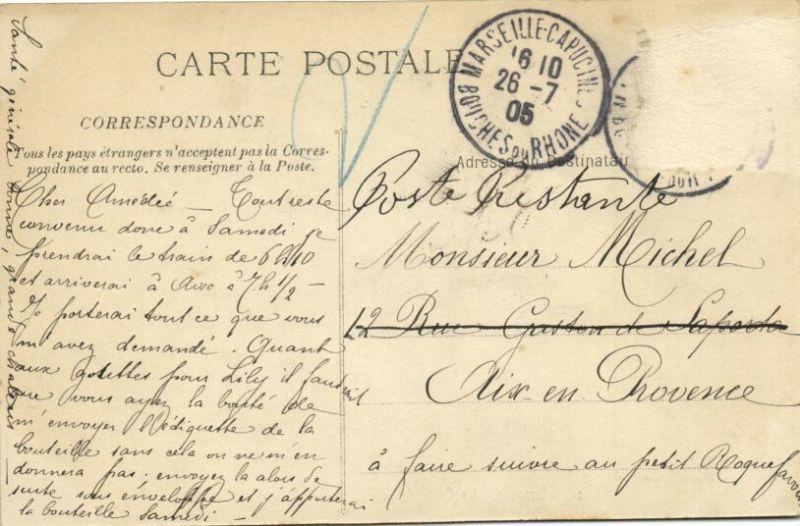 CARTE POSTALE
CORRESPONDANCE
Tous les pays étrangers n'acceptent pas la Corres-
pondance au recto. Se renseigner à la Poste.
MARSEILLE-CAPUCINES
16 10
26 -7
05
BOUCHES DU RHONE
Adresse du Destinatai
Cher Amédée _ Tout reste
convenu donc à Samedi je
prendrai le train de 6h10
et arriverai à Aix à 7h1/2 _
Je porterai tout ce que vous
m'avez demandé. Quant
aux gouttes pour Lily il faudrait
que vous ayez la bonté de
m'envoyer l'édiquette de la
bouteille sans cela on ne m'en
donnera pas. envoyez la alors de
suite sous enveloppe et j'apporterai
la bouteille Samedi _
Santé générale bonne, grande chaleurs
Poste Restante
Monsieur Michel
12 Rue Gaston de Saporta
Aix en Provence
à faire suivre au petit Roquefavour